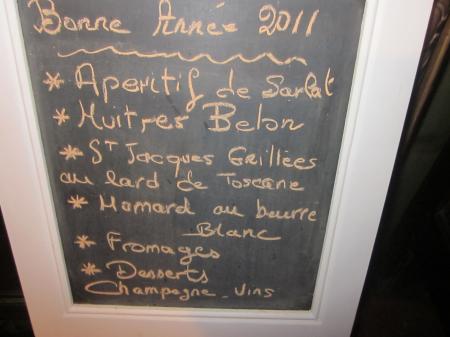 Bonne Année 2011
* Aperitif de Sarlat
* Huitres Belon
* St Jacques Grillées
au lard de Toscane
* Homard au beurre
Blanc
* Fromages
* Desserts
Champagne - Vins